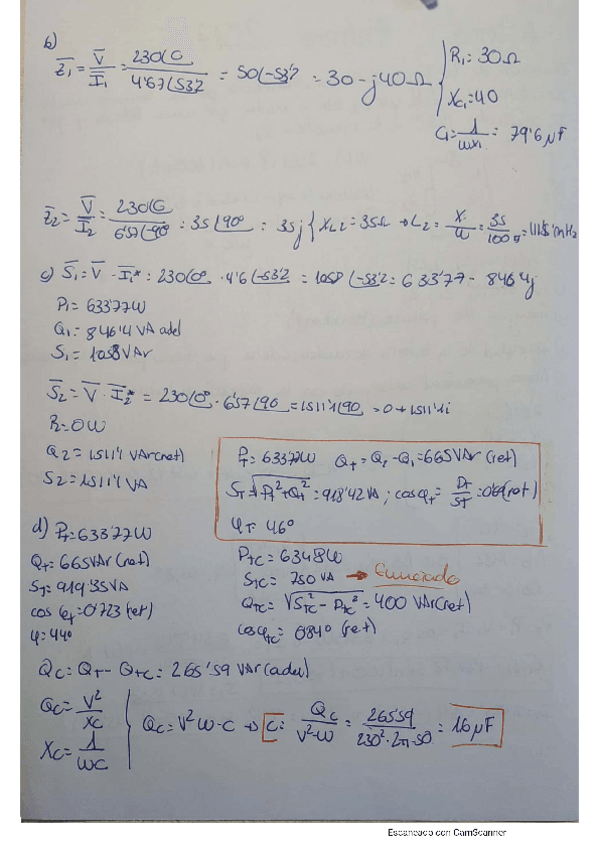 b)
Z̄1 = V̄/Ī1 = 230∠0/4'6∠53'2 = 50∠-53'2 = 30 - j40 Ω { R1 = 30 Ω
Xc1 = 40
C1 = 1/ωx1 = 79'6 μF
Z̄2 = V̄/Ī2 = 230∠0/6'57∠-90 = 35∠90° = 35j { XL2 = 35Ω → L2 = X/ω = 35/100π = 111'5 mHz
c) S̄1 = V̄ · Ī1* = 230∠0° · 4'6∠-53'2 = 1058∠-53'2 = 633'77 - 846'4j
P1 = 633'77W
Q1 = 846'4 VA adel
S1 = 1058 VAr
S̄2 = V̄ · Ī2* = 230∠0° · 6'57∠90 = 1511'1∠90 = 0 + 1511'1i
P2 = 0W
Q2 = 1511'1 VAr(ret)
S2 = 1511'1 VA
PT = 633'77W QT = Q2 - Q1 = 665 VAr (ret)
ST = √PT²+QT² = 918'42 VA ; cosφT = PT/ST = 0'69 (ret)
φT = 46°
d) PT = 633'77W
QT = 665 VAr (ret)
ST = 919'35 VA
cos φT = 0'723 (ret)
φ = 44°
PTC = 634'8 W
STC = 750 VA → Enunciado
QTC = √STC² - PTC² = 400 VAr(ret)
cosφTC = 0'84° (ret)
QC = QT - QTC = 265'59 VAr (adel)
QC = V²/XC
XC = 1/ωC
QC = V² ω · C → C = QC/V²·ω = 265'59/230²·2π·50 = 16 μF
Escaneado con CamScanner